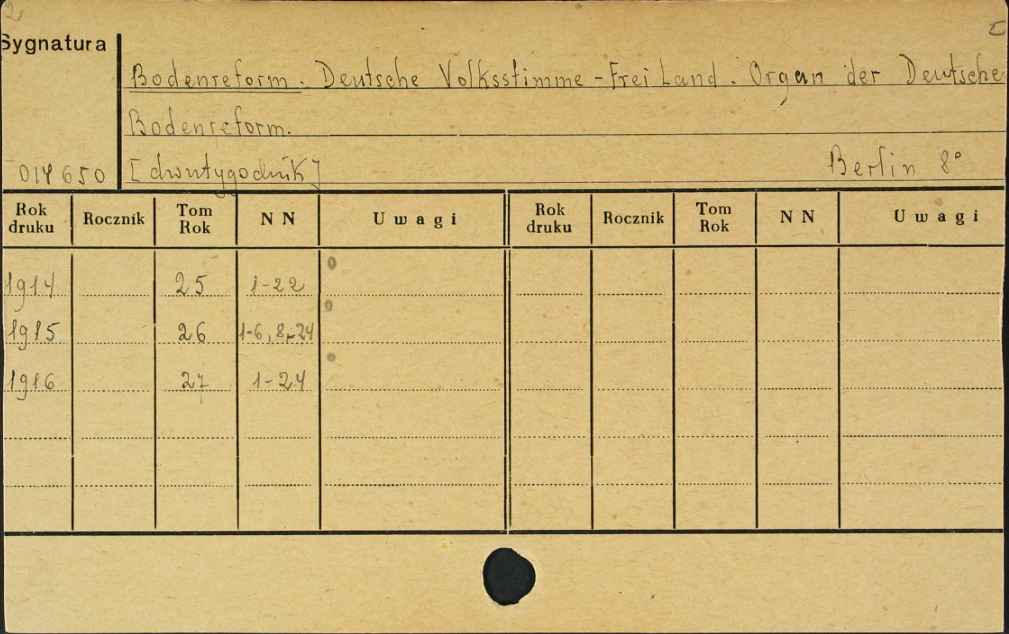 Sygnatura
Bodenreform. Deutsche Volksstimme - Frei Land. Organ der Deutsche
Bodenreform.
014650 [dwutygodnik] Berlin 8°
Rok druku Rocznik Tom Rok NN Uwagi Rok druku Rocznik Tom Rok NN Uwagi
1914 25 1-22
1915 26 1-6, 8-24
1916 27 1-24